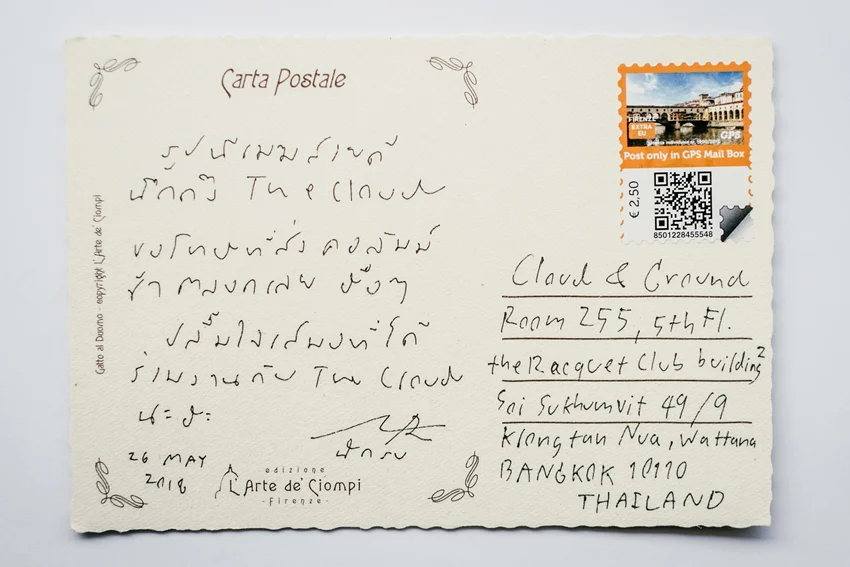 Carta Postale
The Cloud
ขอโทษที่ส่งคอลัมน์
ช้าตลอดเลย
ปลื้มใจเสมอที่ได้
ร่วมงานกับ The Cloud
นะ
26 MAY
2018
edizione
L'Arte de' Ciompi
-Firenze-
Gatto al Duomo - copyright L'Arte de' Ciompi
FIRENZE
EXTRA
EU
GPS
Post only in GPS Mail Box
€ 2,50
8501228455548
Cloud & Ground
Room 255, 5th Fl.
the Racquet Club building 2
Soi Sukhumvit 49/9
Klongtan Nua, Wattana
BANGKOK 10110
THAILAND